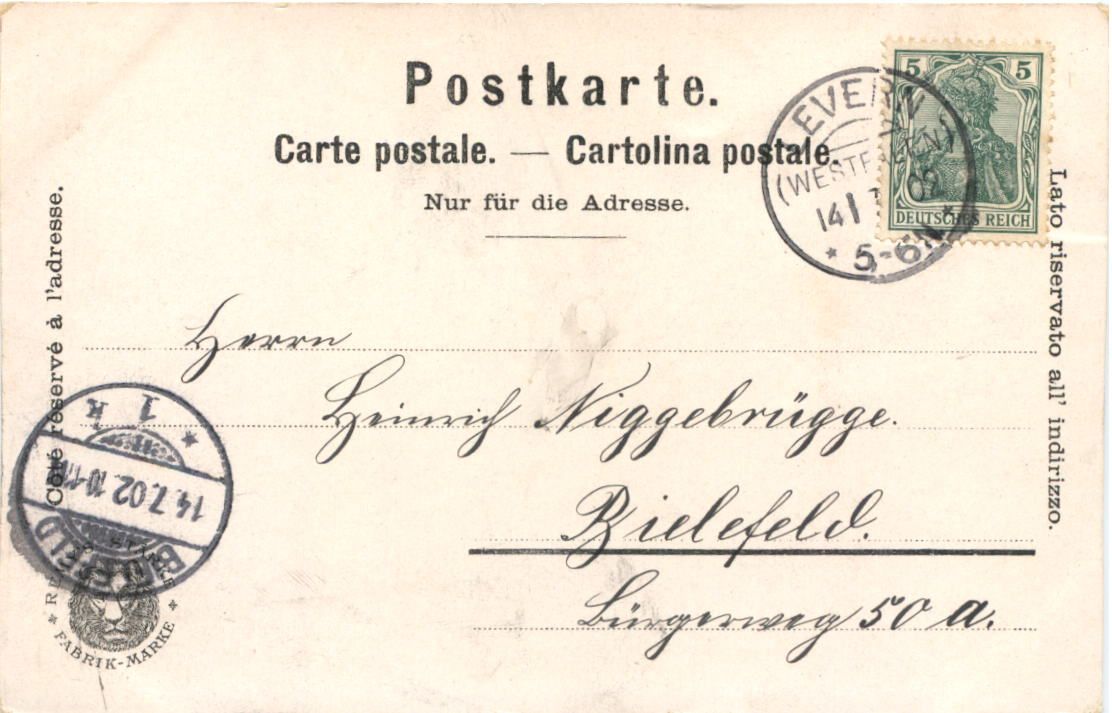 Postkarte.
Carte postale. — Cartolina postale.
Nur für die Adresse.
5 5
DEUTSCHES REICH
LEVERN
(WESTFALEN)
14 7 02
* 5-6N *
Côté réservé à l'adresse.
Lato riservato all' indirizzo.
Herrn
Heinrich Niggebrügge.
Bielefeld.
Bürgerweg 50 a.
* 1 k
14.7.02. 10-11N
BIELEFELD
* FABRIK-MARKE *